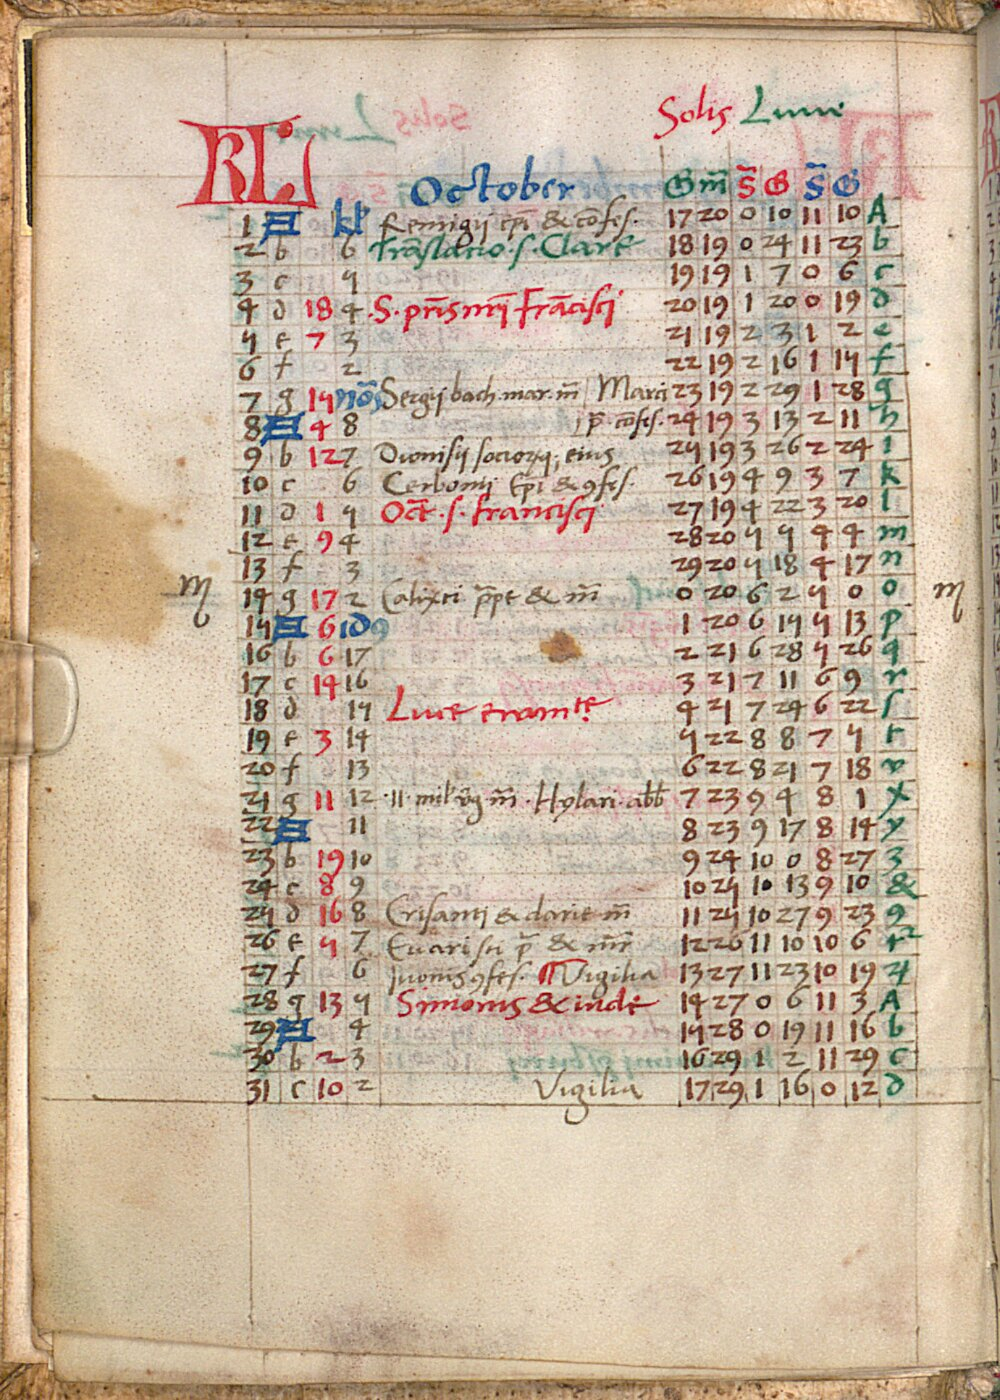 Solis Lune
KL October G m̄ S̄ G S̄ G
1 A kł Remigij ep̄i & cōfes. 17 20 0 10 11 10 A
2 b 6 Trāslatio .s. Clare 18 19 0 24 11 23 b
3 c 5 19 19 1 7 0 6 c
4 d 18 4 .S. pr̄is mr̄i Frācisci 20 19 1 20 0 19 d
5 e 7 3 21 19 2 3 1 2 e
6 f 2 22 19 2 16 1 15 f
7 g 15 nōs Sergij bach. mar. m̄ Marci 23 19 2 29 1 28 g
8 A 4 8 p̄. cōfes. 24 19 3 13 2 11 h
9 b 12 7 Dionisij socioꝝ, eius 25 19 3 26 2 24 i
10 c 6 Cerbonij ep̄i & 9fes. 26 19 4 9 3 7 k
11 d 1 5 Oct̄. s. francisci 27 19 4 22 3 20 l
12 e 9 4 28 20 5 5 4 4 m
13 f 3 29 20 5 18 4 17 n
♏ 14 g 17 2 Calixti pp̄e & m̄ 0 20 6 2 5 0 o ♏
15 A 6 id9 1 20 6 15 5 13 p
16 b 6 17 2 21 6 28 5 26 q
17 c 14 16 3 21 7 11 6 9 r
18 d 15 Luce evāmte 4 21 7 24 6 22 s
19 e 3 14 5 22 8 8 7 5 t
20 f 13 6 22 8 21 7 18 v
21 g 11 12 .11. mil. v̄g m̄. Hylari. abb̄ 7 23 9 4 8 1 x
22 A 11 8 23 9 17 8 14 y
23 b 19 10 9 24 10 0 8 27 3
24 c 8 9 10 25 10 13 9 10 &
25 d 16 8 Crisanti & darie m̄ 11 25 10 27 9 23 9
26 e 5 7 Evaristi p̄ & mr̄ 12 26 11 10 10 6
27 f 6 Ivonis 9fes. Vigilia 13 27 11 23 10 19
28 g 13 5 Simonis & iude 14 27 0 6 11 3 A
29 A 4 15 28 0 19 11 16 b
30 b 2 3 16 29 1 2 11 29 c
31 c 10 2 Vigilia 17 29 1 16 0 12 d